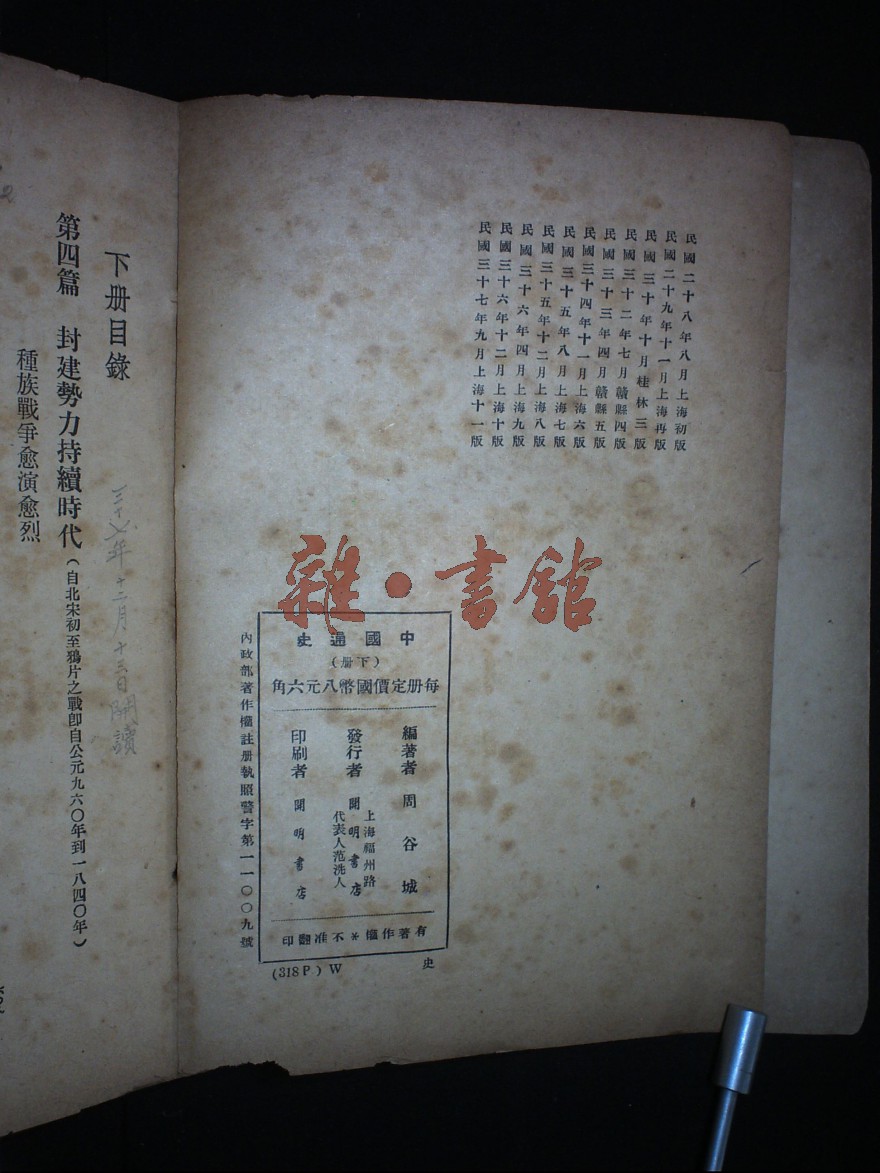 民國二十八年八月上海初版
民國二十九年十一月上海再版
民國三十年十月桂林三版
民國三十二年七月贛縣四版
民國三十三年四月贛縣五版
民國三十四年十一月上海六版
民國三十五年八月上海七版
民國三十五年十二月上海八版
民國三十六年四月上海九版
民國三十六年十二月上海十版
民國三十七年九月上海十一版
雜·書館
中國通史
(下册)
每册定價國幣八元六角
編著者 周谷城
上海福州路
發行者 開明書店
代表人范洗人
印刷者 開明書店
有著作權*不准翻印
內政部著作權註册執照警字第一一〇〇九號
史
(318P) W
下册目錄
三十七年十二月十三日開讀
第四篇 封建勢力持續時代(自北宋初至鴉片之戰卽自公元九六〇年到一八四〇年)
種族戰爭愈演愈烈